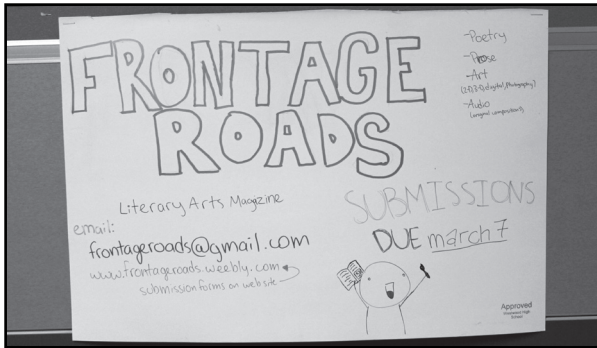 FRONTAGE
ROADS
-Poetry
-Prose
-Art
(2-D, 3-D, digital, Photography)
-Audio
(original compositions)
Literary Arts Magazine
email:
frontageroads@gmail.com
www.frontageroads.weebly.com
submission forms on website
SUBMISSIONS
DUE march 7
Approved
Homewood High
School